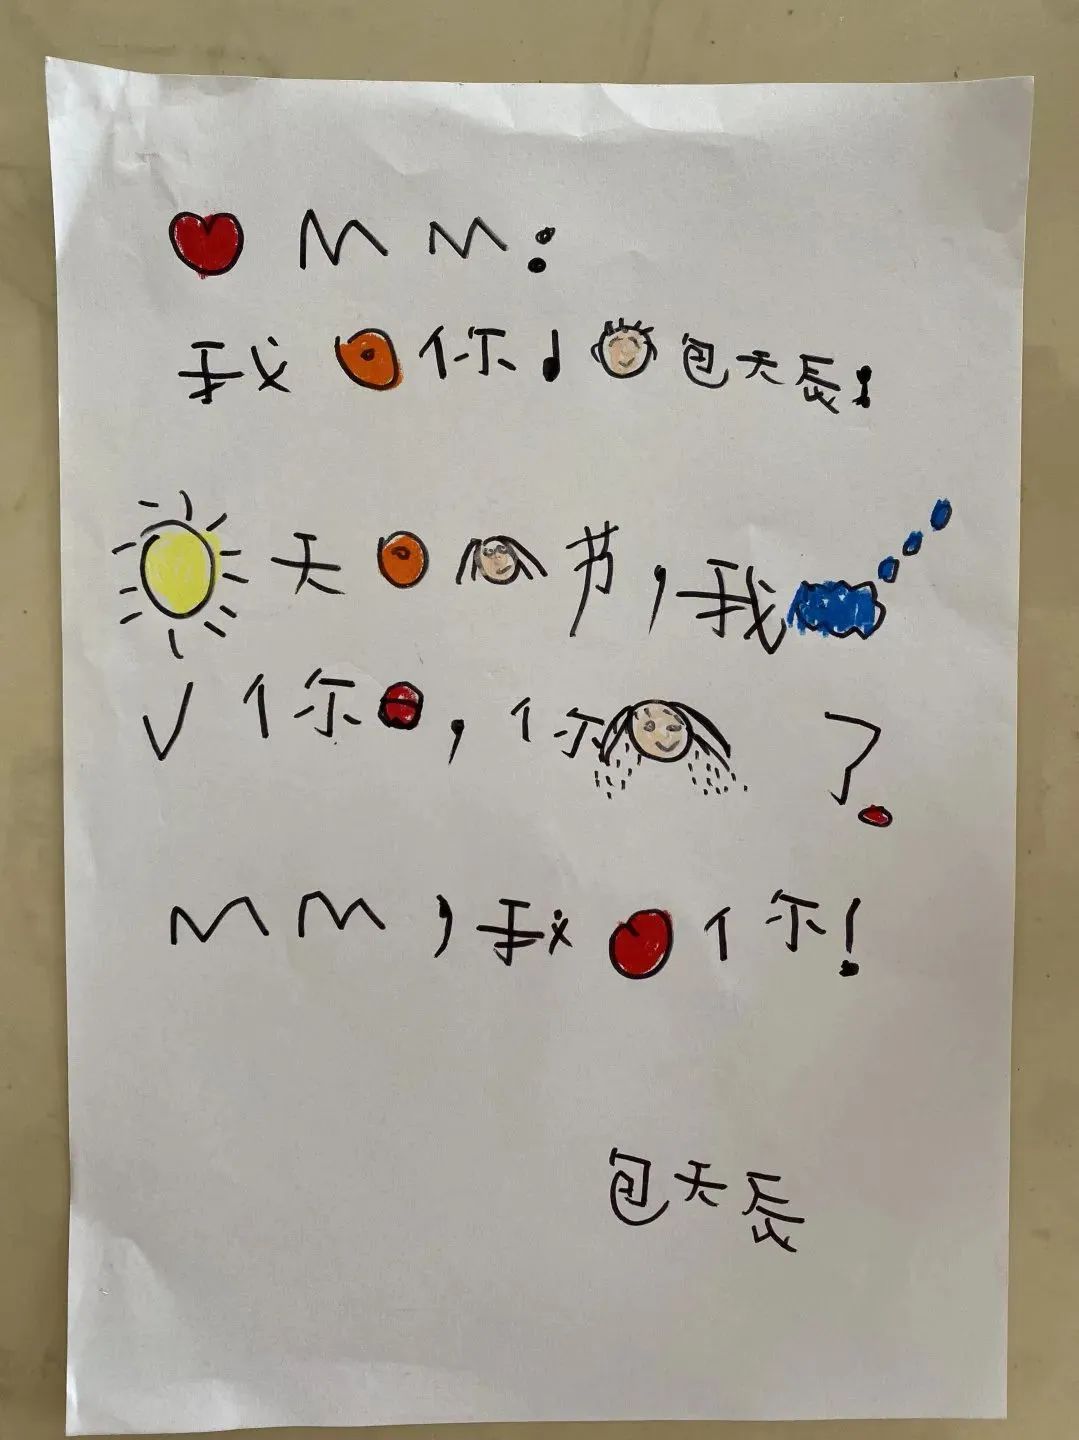 MM：
我你！包天辰！
天节，我
√你，你？
MM，我你！
包天辰